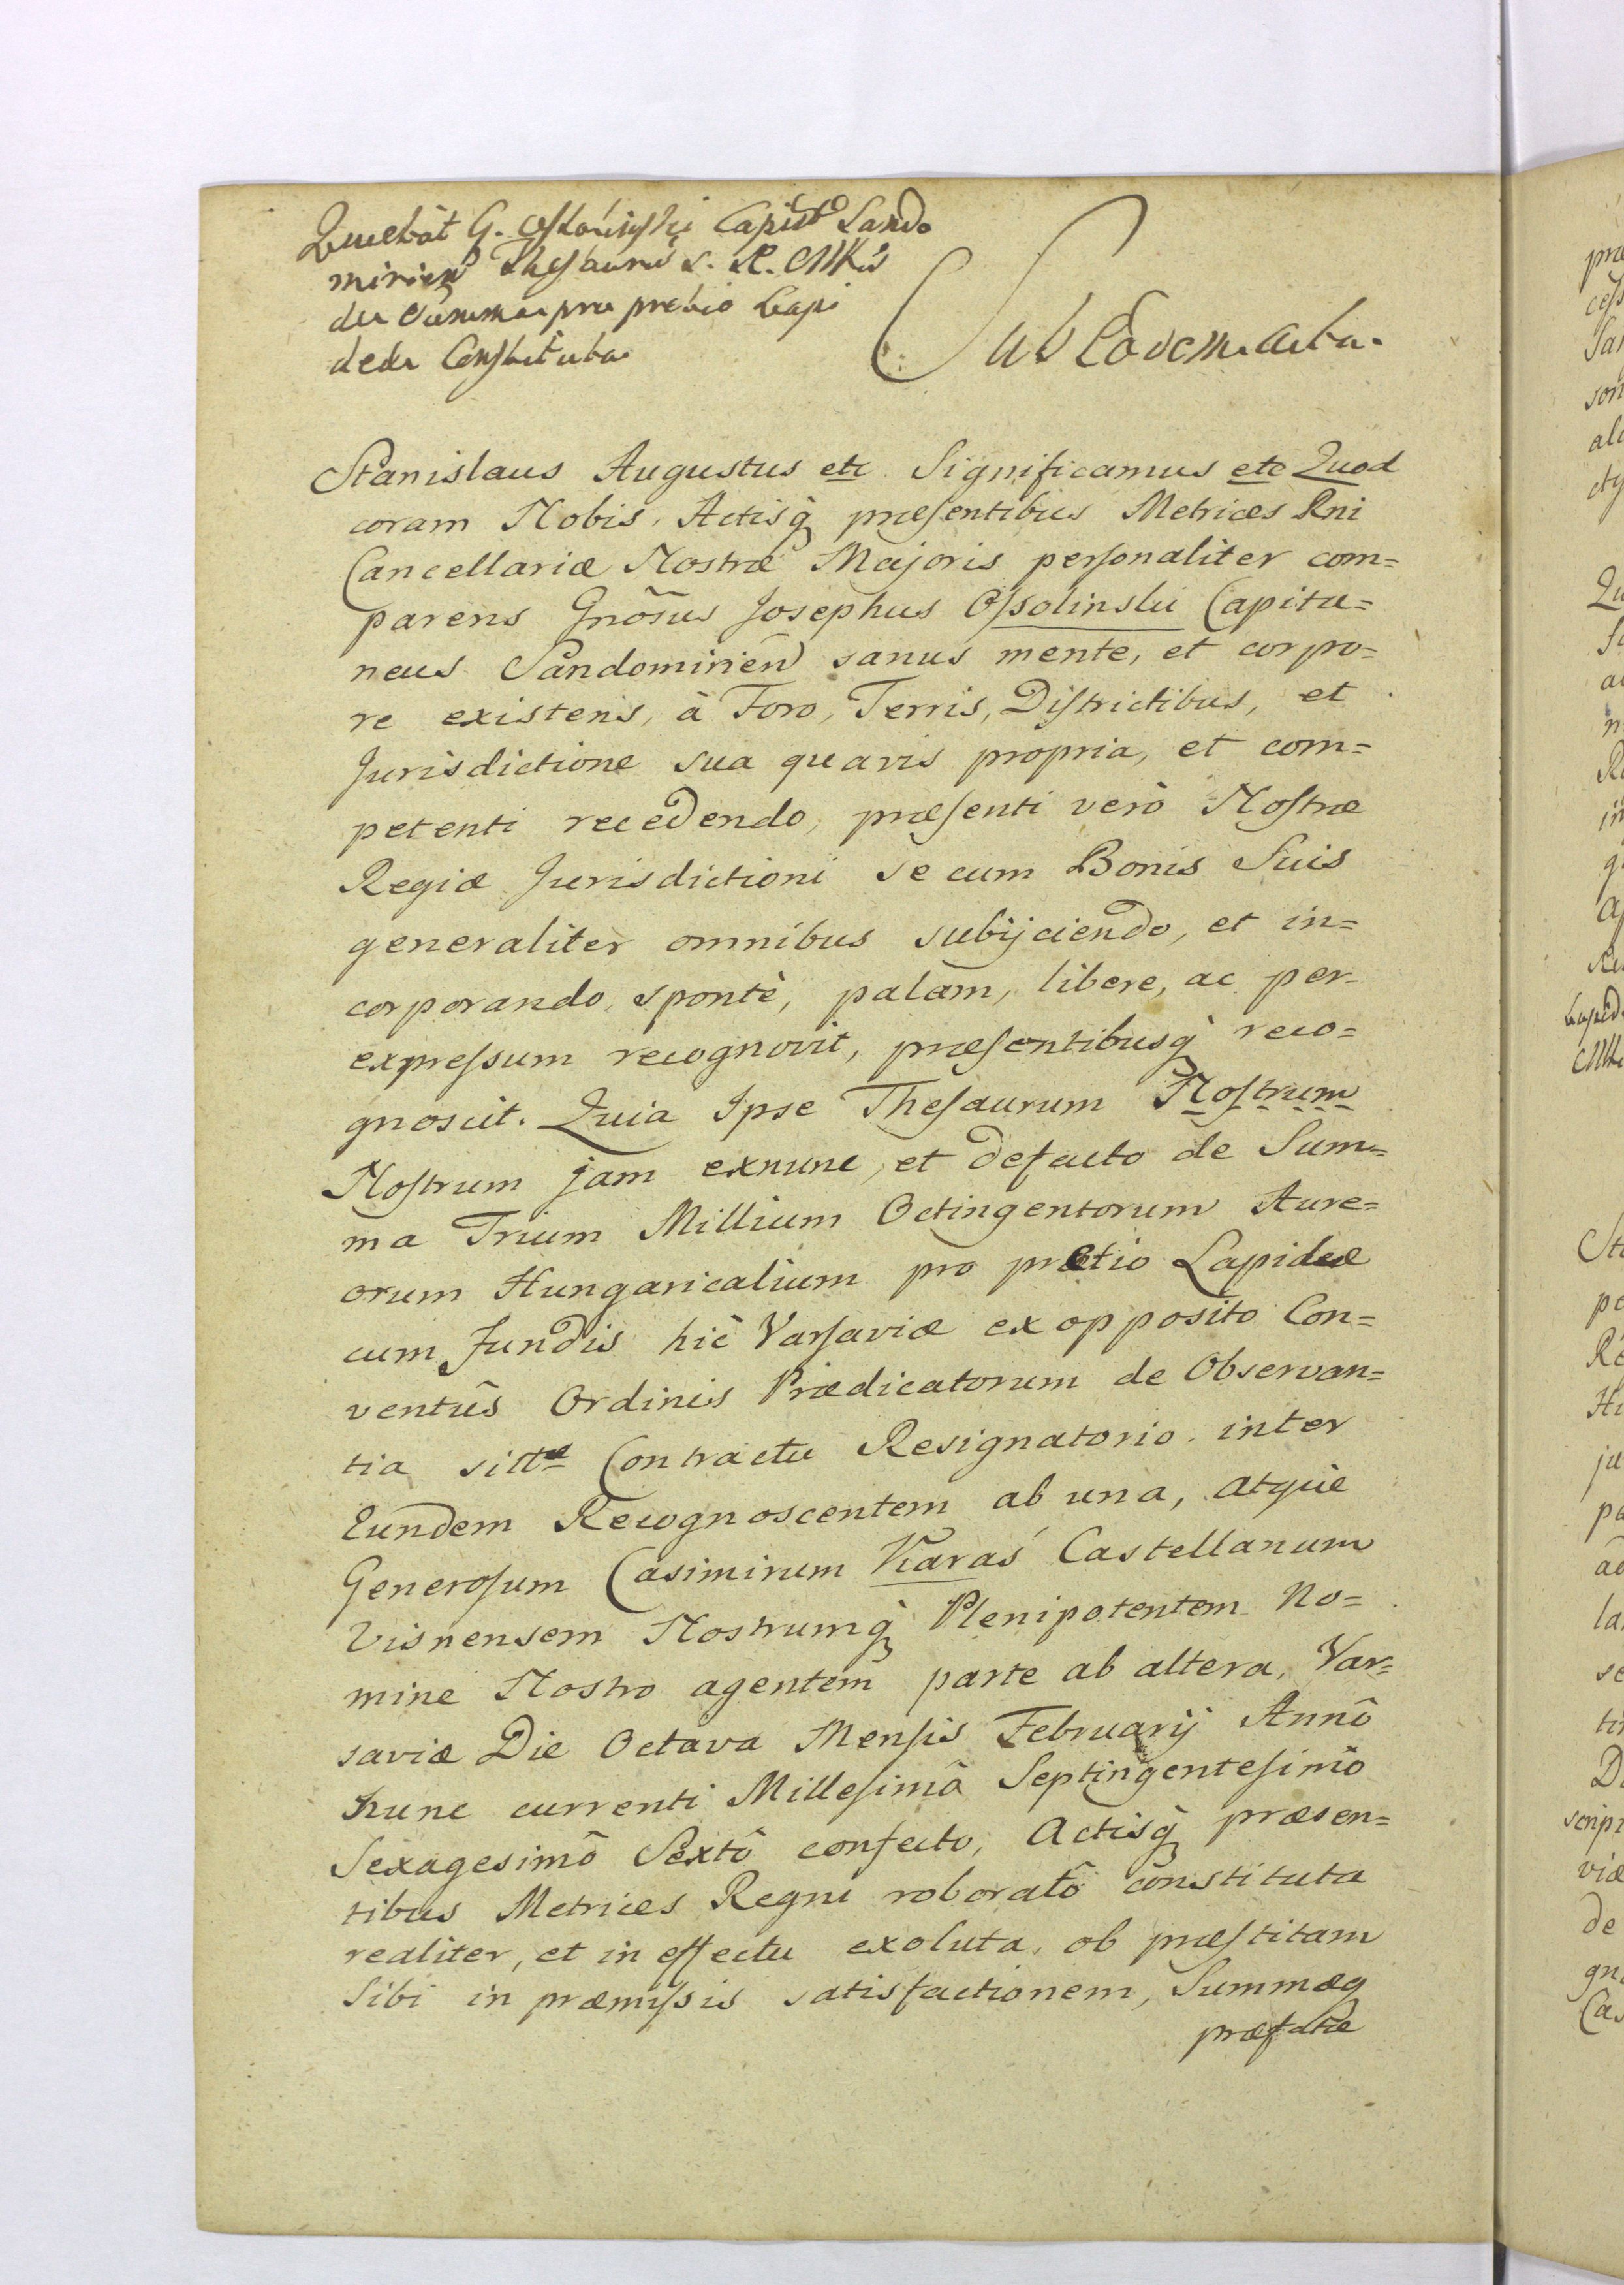 Quietat G. Ossoliński Capit. Sando
mirien Thesaurũ S. R. Mttis
de Summa pro pretio Lapi
deæ Constituta
Sub Eodem Actu.
Stanislaus Augustus etc Significamus etc Quod
coram Nobis, Actisq̀ præsentibus Metrices Rni
Cancellariæ Nostræ Majoris personaliter com=
parens Gnõsus Josephus Ossolinski Capita=
neus Sandomirien̄ sanus mente, et corpo=
re existens, à Foro, Terris, Districtibus, et
Jurisdictione sua quavis propria, et com=
petenti recedendo, præsenti verò Nostræ
Regiæ Jurisdictioni se cum Bonis Suis
generaliter omnibus subijciendo, et in=
corporando, spontè, palàm, libere, ac per-
expressum recognovit, præsentibusq̀ reco=
gnoscit. Quia Ipse Thesaurum Nostrum
Nostrum jam exnunc, et defacto de Sum=
ma Trium Millium Octingentorum Aure=
orum Hungaricalium pro prætio Lapideæ
cum Fundis hic Varsaviæ ex opposito Con=
ventûs Ordinis Prædicatorum de Observan=
tia sittæ Contractu Resignatorio inter
Eundem Recognoscentem ab una, atque
Generosum Casimirum Karaś Castellanum
Visnensem Nostrumq̀ Plenipotentem No=
mine Nostro agentem parte ab altera, Var=
saviæ Die Octava Mensis Februarij Annô
hunc currenti Millesimô Septingentesimô
Sexagesimô Sextô confecto, Actisq̀ præsen=
tibus Metrices Regni roboratô constituta
realiter, et in effectu exoluta, ob præstitam
Sibi in præmissis satisfactionem, Summæq
præfatæ